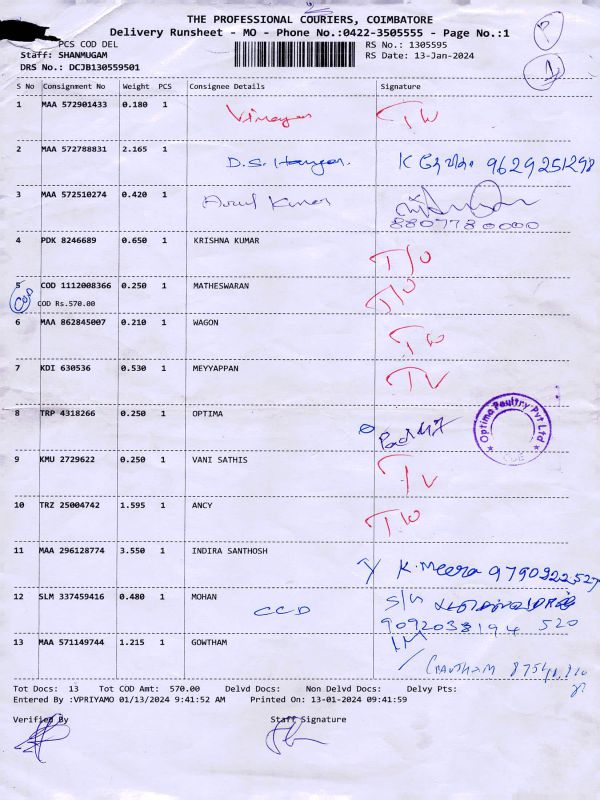 THE PROFESSIONAL COURIERS, COIMBATORE
Delivery Runsheet - MO - Phone No.:0422-3505555 - Page No.:1
PCS COD DEL
RS No.: 1305595
Staff: SHANMUGAM
RS Date: 13-Jan-2024
DRS No.: DCJB130559501
S No Consignment No Weight PCS Consignee Details Signature
1 MAA 572901433 0.180 1 Vinayan T W
2 MAA 572788831 2.165 1 D.S. 9629251298
3 MAA 572510274 0.420 1 Arul Kumar
8807780000
4 PDK 8246689 0.650 1 KRISHNA KUMAR
5 COD 1112008366 0.250 1 MATHESWARAN
COD COD Rs.570.00
6 MAA 862845007 0.210 1 WAGON T W
7 KDI 630536 0.530 1 MEYYAPPAN T V
8 TRP 4318266 0.250 1 OPTIMA Optima Poultry Pvt Ltd CBE
9 KMU 2729622 0.250 1 VANI SATHIS
10 TRZ 25004742 1.595 1 ANCY T.W
11 MAA 296128774 3.550 1 INDIRA SANTHOSH K. Meera 9790922527
12 SLM 337459416 0.480 1 MOHAN CCD
9092038194 520
13 MAA 571149744 1.215 1 GOWTHAM
Tot Docs: 13 Tot COD Amt: 570.00 Delvd Docs: Non Delvd Docs: Delvy Pts:
Entered By :VPRIYAMO 01/13/2024 9:41:52 AM Printed On: 13-01-2024 09:41:59
Verified By Staff Signature